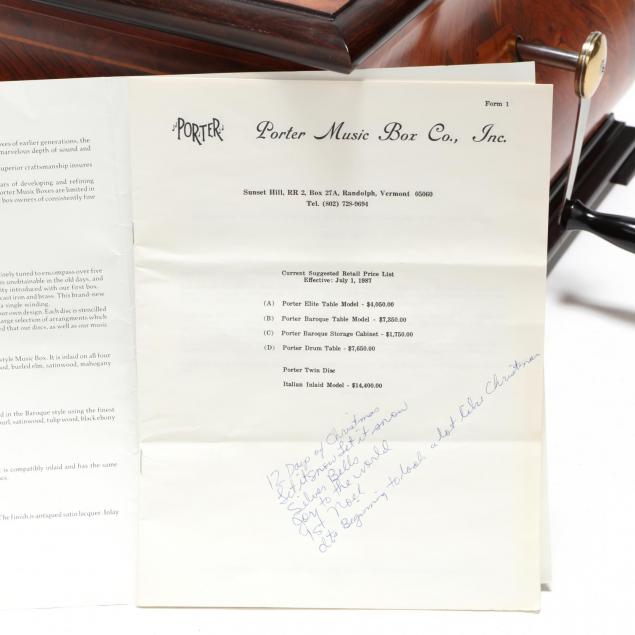 xes of earlier generations, the
marvelous depth of sound and
uperior craftsmanship insures
ars of developing and refining
orter Music Boxes are limited in
box owners of consistently fine
inely tuned to encompass over five
s unobtainable in the old days, and
ity introduced with our first box.
cast iron and brass. This brand-new
a single winding.
our own design. Each disc is stencilled
large selection of arrangments which
ed that our discs, as well as our music
style Music Box. It is inlaid on all four
ood, burled elm, satinwood, mahogany
ed in the Baroque style using the finest
burl, satinwood, tulip wood, black ebony
t is compatibly inlaid and has the same
ses.
The finish is antiqued satin lacquer. Inlay
Form 1
PORTER
Porter Music Box Co., Inc.
Sunset Hill, RR 2, Box 27A, Randolph, Vermont 05060
Tel. (802) 728-9694
Current Suggested Retail Price List
Effective: July 1, 1987
(A) Porter Elite Table Model - $4,050.00
(B) Porter Baroque Table Model - $7,350.00
(C) Porter Baroque Storage Cabinet - $1,750.00
(D) Porter Drum Table - $7,650.00
Porter Twin Disc
Italian Inlaid Model - $14,400.00
12 Days of Christmas
Let it Snow Let it snow
Silver Bells
Joy to the world
1st Noel
Its Beginning to look a lot like Christmas